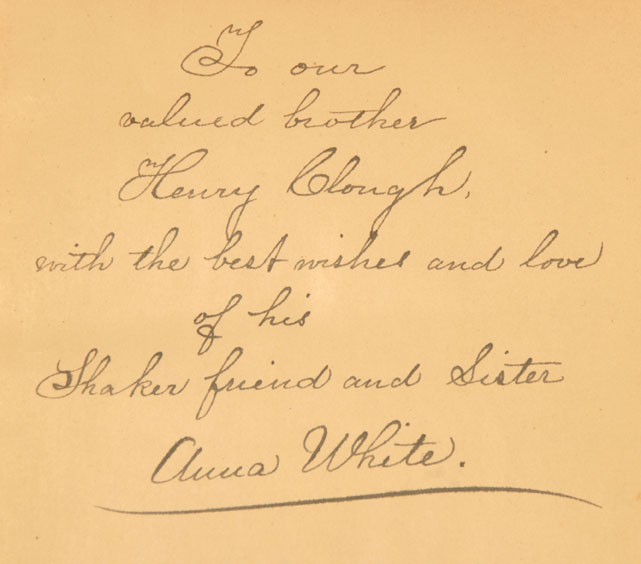 To our
valued brother
Henry Clough,
with the best wishes and love
of his
Shaker friend and Sister
Anna White.